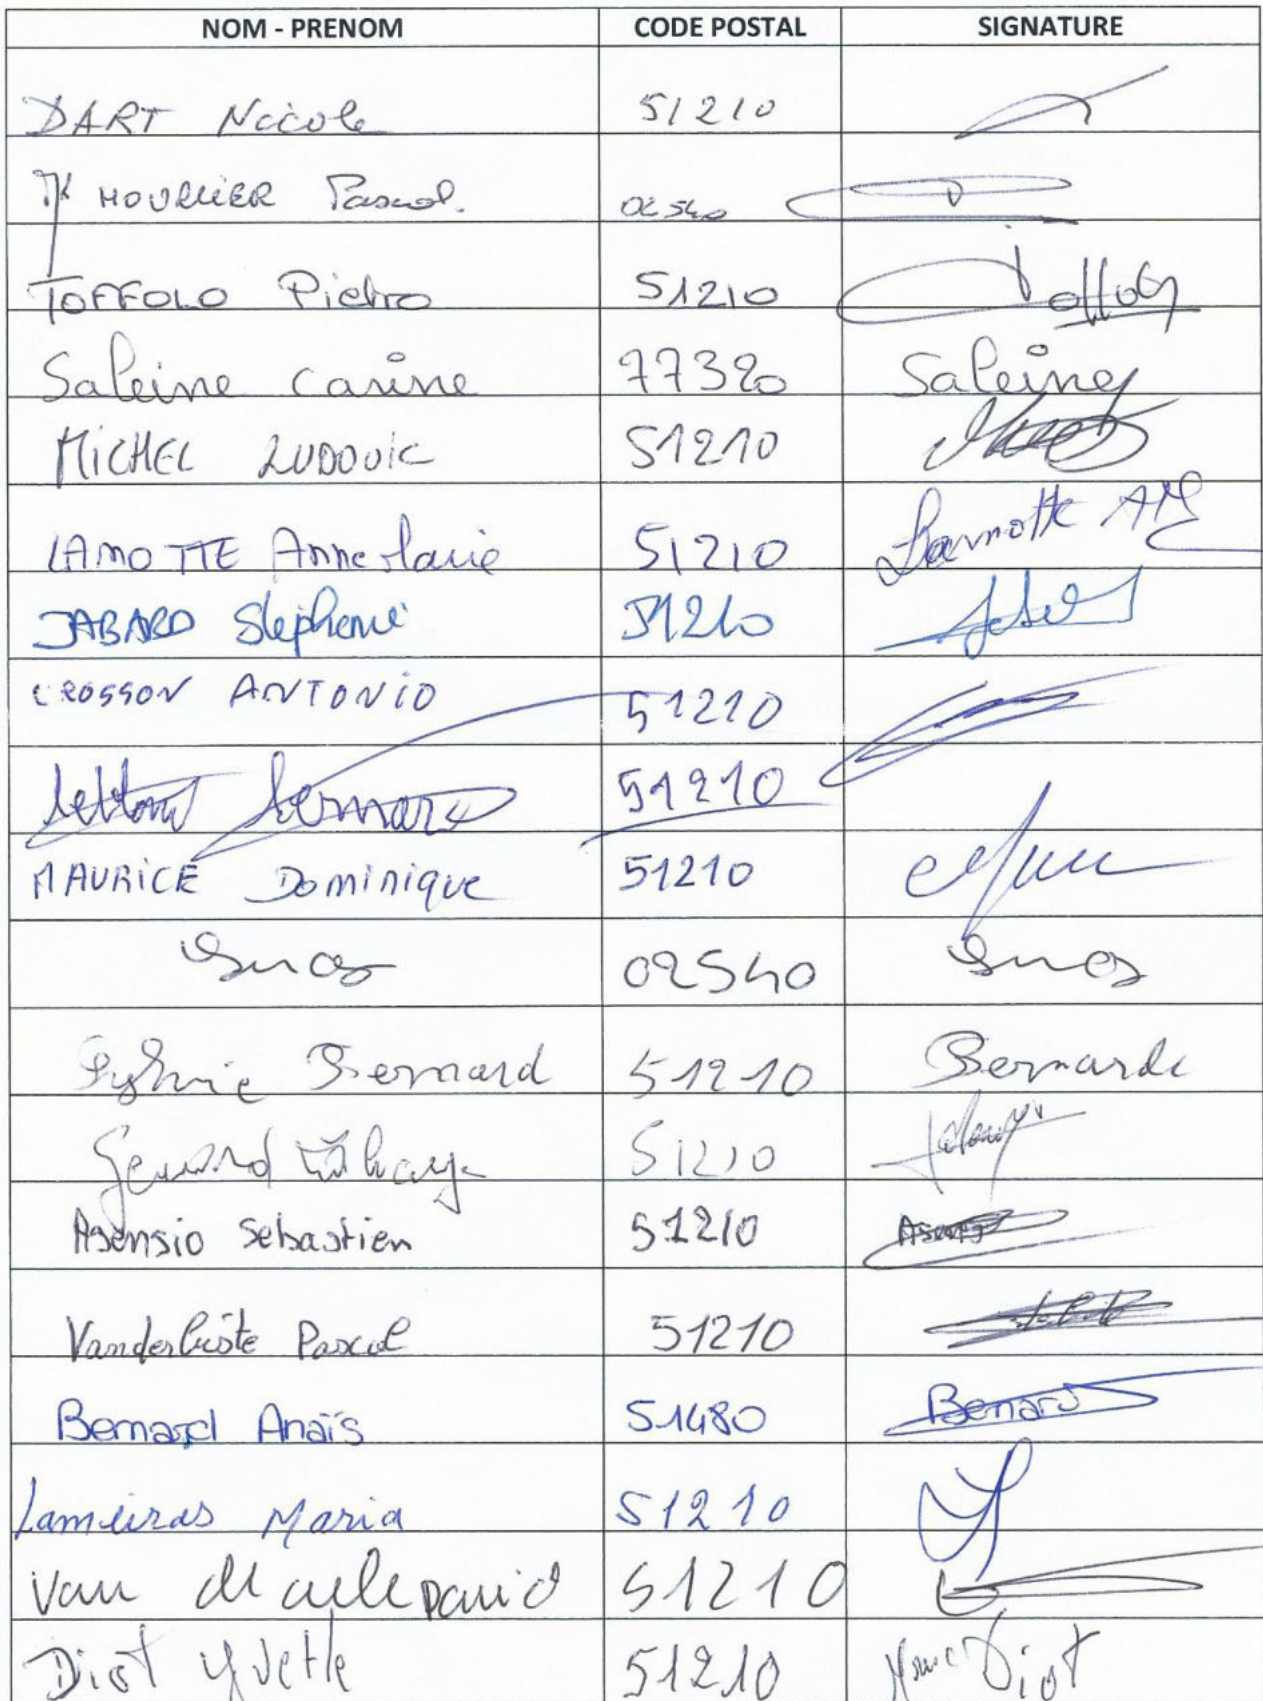 NOM - PRENOM CODE POSTAL SIGNATURE
DART Nicole 51210
Pascal. 02540
TOFFOLO Pietro 51210 Toffolo
Saleine Carine 77320 Saleine
MICHEL LUDOVIC 51210
LAMOTTE Anne Marie 51210 Lamotte AM
JABARD Stephanie 51210
CROSSON ANTONIO 51210
Bernard 51210
MAURICE Dominique 51210
02540
Sylvie Bernard 51210 Bernard
Gerard 51210
Asensio Sébastien 51210
Pascal 51210
Bernard Anaïs 51480 Benard
Lameiras Maria 51210
Van David 51210
Diot Yvette 51210 Mme Diot